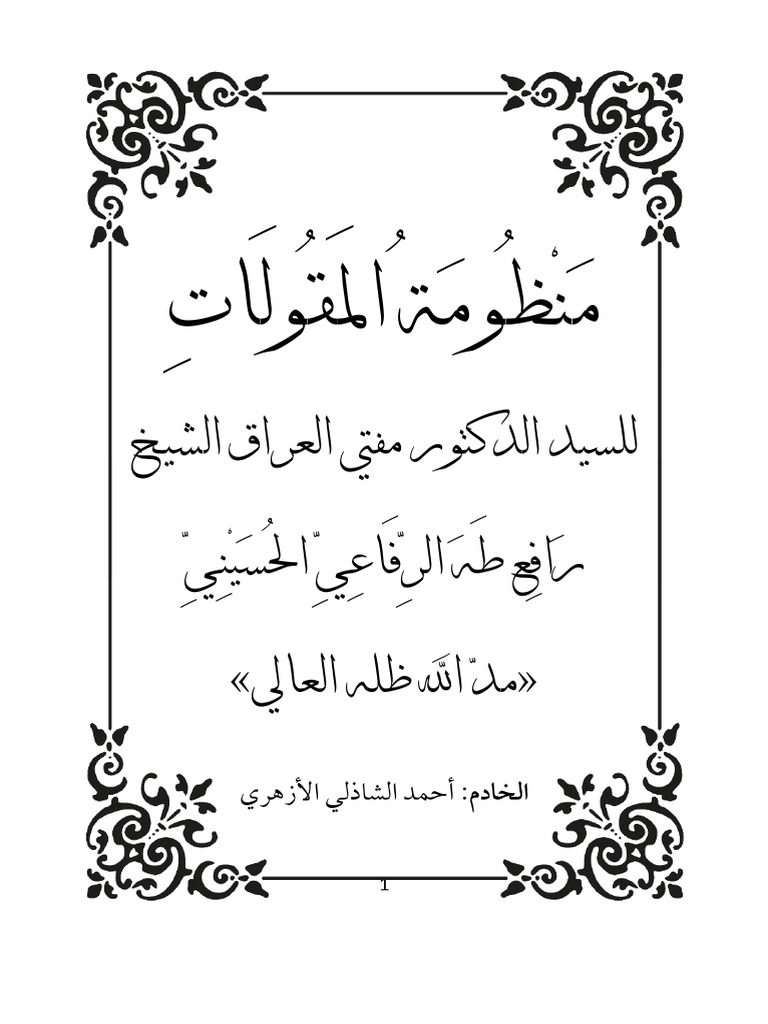 مَنْظُومَةُ المَقُولَاتِ
للسيد الدكتور مفتي العراق الشيخ
رَافِعِ طَهَ الرِّفَاعِيِّ الحُسَيْنِيِّ
«مدّ الله ظله العالي»
الخادم: أحمد الشاذلي الأزهري
1